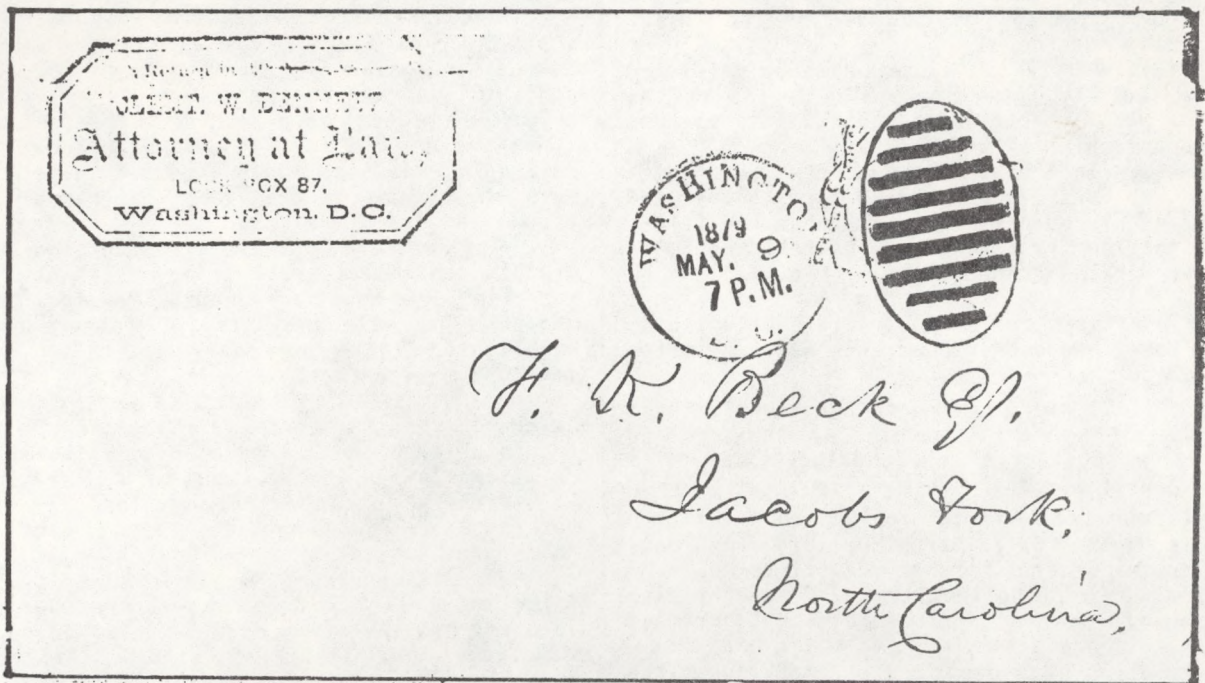 W. BENNETT
Attorney at Law,
LOCK BOX 87,
Washington, D.C.
WASHINGTON
1879
MAY. 9
7 P.M.
D.C.
F. K. Beck Esq.
Jacobs Fork,
North Carolina,